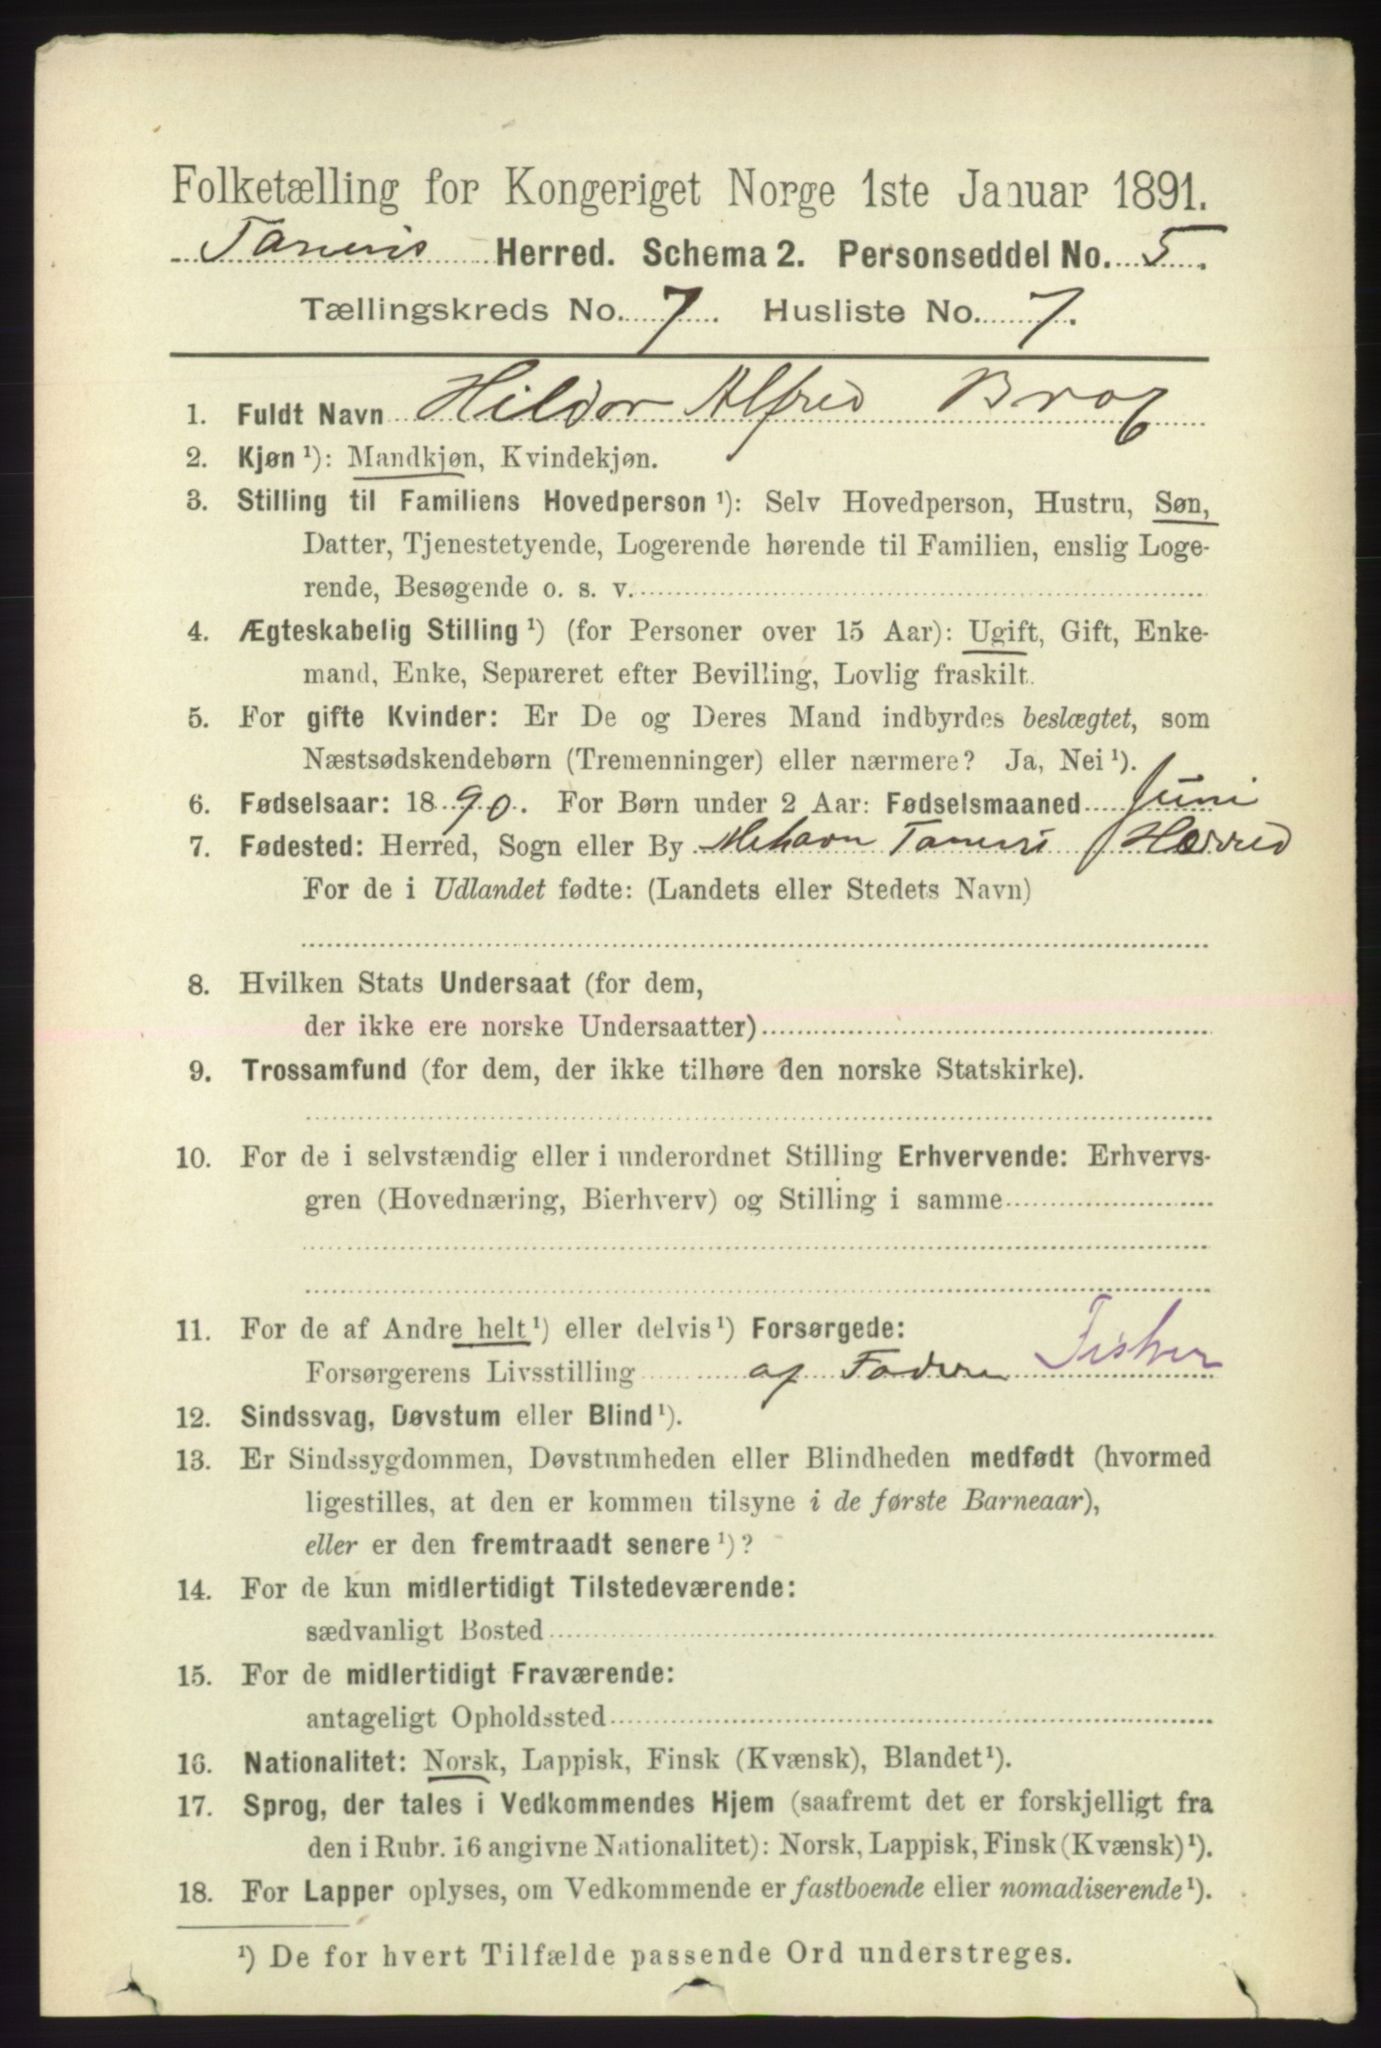 Folketælling for Kongeriget Norge 1ste Januar 1891.
Tanens Herred. Schema 2. Personseddel No. 5.
Tællingskreds No. 7. Husliste No. 7.
1. Fuldt Navn Hildor Alfred Brox
2. Kjøn ¹): Mandkjøn, Kvindekjøn.
3. Stilling til Familiens Hovedperson ¹): Selv Hovedperson, Hustru, Søn,
Datter, Tjenestetyende, Logerende hørende til Familien, enslig Loge-
rende, Besøgende o. s. v.
4. Ægteskabelig Stilling ¹) (for Personer over 15 Aar): Ugift, Gift, Enke-
mand, Enke, Separeret efter Bevilling, Lovlig fraskilt.
5. For gifte Kvinder: Er De og Deres Mand indbyrdes beslægtet, som
Næstsødskendebørn (Tremenninger) eller nærmere? Ja, Nei ¹).
6. Fødselsaar: 1890. For Børn under 2 Aar: Fødselsmaaned Juni
7. Fødested: Herred, Sogn eller By Mehavn Tanens Herred
For de i Udlandet fødte: (Landets eller Stedets Navn)
8. Hvilken Stats Undersaat (for dem,
der ikke ere norske Undersaatter)
9. Trossamfund (for dem, der ikke tilhøre den norske Statskirke).
10. For de i selvstændig eller i underordnet Stilling Erhvervende: Erhvervs-
gren (Hovednæring, Bierhverv) og Stilling i samme
11. For de af Andre helt ¹) eller delvis ¹) Forsørgede:
Forsørgerens Livsstilling af Faderen Fisker
12. Sindssvag, Døvstum eller Blind ¹).
13. Er Sindssygdommen, Døvstumheden eller Blindheden medfødt (hvormed
ligestilles, at den er kommen tilsyne i de første Barneaar),
eller er den fremtraadt senere ¹)?
14. For de kun midlertidigt Tilstedeværende:
sædvanligt Bosted
15. For de midlertidigt Fraværende:
antageligt Opholdssted
16. Nationalitet: Norsk, Lappisk, Finsk (Kvænsk), Blandet ¹).
17. Sprog, der tales i Vedkommendes Hjem (saafremt det er forskjelligt fra
den i Rubr. 16 angivne Nationalitet): Norsk, Lappisk, Finsk (Kvænsk) ¹).
18. For Lapper oplyses, om Vedkommende er fastboende eller nomadiserende ¹).
¹) De for hvert Tilfælde passende Ord understreges.